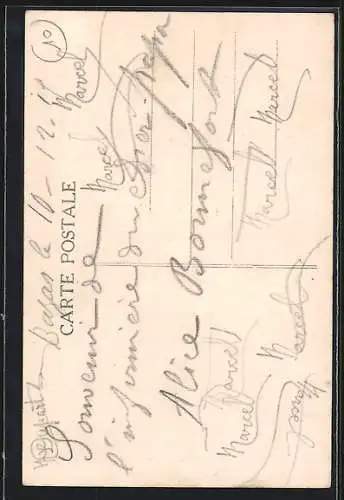 CARTE POSTALE
le 10-12-15
Souvenir de
l'infirmière du cher papa
Alice Bonnefont
Marcel
Marcel
Marcel
Marcel
Marcel
Marcel
Marcel
Marcel
10